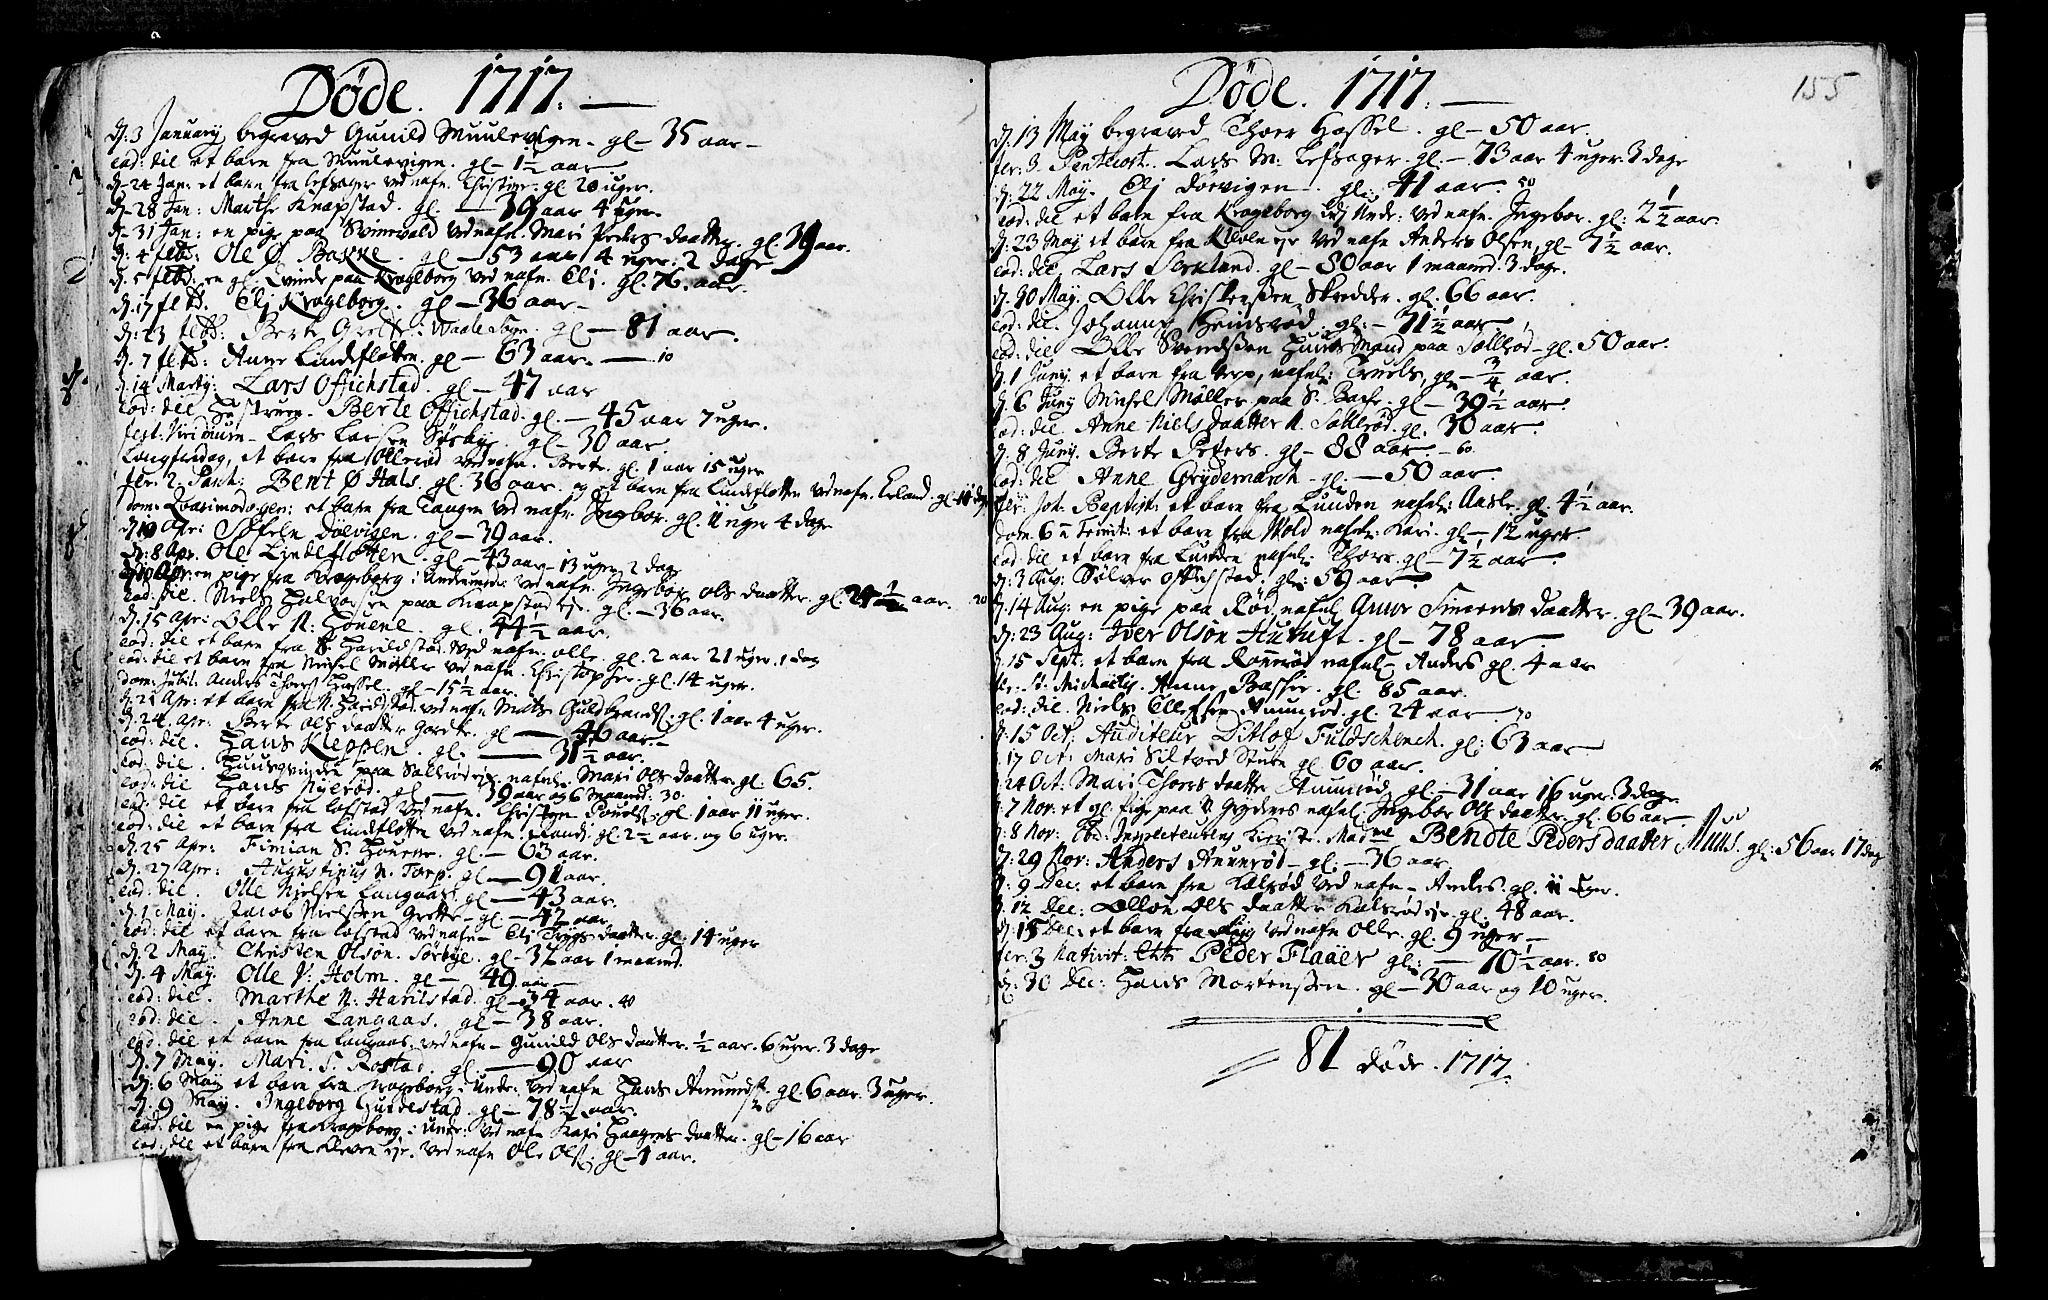 Døde. 1717.
d: 3 January begraved Gunild Muulevigen. gl - 35 aar -
eod: die et barn fra Muulevigen. gl - 1½ aar.
d. 24 Jan: et barn fra Lefsager ved nafn. Christine: gl. 20 uger.
d. 28 Jan: Marthe Knapstad. gl. - 39 aar 4 uger.
d. 31 Jan: en pige paa Svinevald ved nafn. Mari Peders daatter. gl. 39 aar.
d: 4 febr: Ole Ø Bakke. gl - 53 aar 4 uger: 2 dage
d. 5 febr: en gl. Qvinde paa Krogeborg ved nafn. Elj. gl. 76. aar.
d. 17 febr. Elj Krogeborg. gl - 36 aar -
d: 23 febr: Berte : i Waale Sogn. gl - 81 aar.
d. 7 febr: Anne Lindefloten. gl - 63 aar. - 10
d. 14 Marty: Lars Offichstad. gl - 47 aar
eod: die Hustruen. Berte Offichstad. gl. - 45 aar 7 uger.
fest: Viridium - Lars Larsen Sørbye. gl - 30 aar.
Langfredag, et barn fra Ollerød ved nafn. Berte. gl. 1 aar 15 uger
fer: 2. Pasch: Bent Ø Hals. gl. 36 aar. og et barn fra Lindefloten ved nafn. Erland. gl. 11 dage
dom: Quasimodogen: et barn fra Tangen ved nafn. Ingebor. gl. 11 uger 4 dage
d. 19 Apr: Døevigen. gl - 39 aar.
d: 8 Apr. Ole Lindefloten. gl - 43 aar - 13 uger 2 dage
d. 10 Apr: en pige fra Krogeborg i Underneder ved nafn. Ingebor Ols daatter. gl. 24½ aar. 20
eod: die. Niels Halvorsen paa Knapstad eje. gl. - 36 aar.
d. 15 Apr: Olle N: Honene. gl. 44½ aar.
eod: die et barn fra N: Harildstad. ved nafn. olle. gl. 2 aar 21 uger. 1 dag
eod: die et barn fra Michel Møller ved nafn. Christopher. gl. 14 uger.
dom: Jubil: Anders Thoers Hassel. gl - 15½ aar.
d. 21 Apr: et barn fra N. Harildstad. ved nafn Mats Guldbrands: gl. 1 aar 4 uger.
d. 24. Apr: Berte Ols daatter Garder. gl. - 46 aar. -
eod: die. Hans Kleppen. gl. - 31½ aar.
eod: die. Huusqvinde paa Sollerød eje. nafnl: Mari Ols daatter. gl. 65.
eod: die Hans Nyerød. gl - 39 aar og 6 maaned. 30.
eod: die et barn fra Lofstad ved nafn. Christen Pouels: gl. 1 aar 11 uger.
eod: die et barn fra Lindefloten ved nafn. Erland: gl. 2½ aar. og 6 uger.
d. 25 Apr: Simian S. Honene. gl. - 63 aar.
d. 27 Apr: Augustinus N. Torp. gl - 91 aar.
eod: die. Olle Nielsen Langaas. gl - 43 aar.
d. 1 May. Jacob Nielsen Grette - gl. - 42 aar.
eod: die et barn fra Lofstad ved nafn - Elj Trygs daatter. gl. 14 uger
d. 2 May. Christen Olsøn. Sørbye. gl - 32 aar 1 maaned.
d. 4 May. Olle V: Holm. gl - 49 aar -
eod: die. Marthe N: Harilstad. gl - 34 aar. 40
eod: die. Anne Langaas. gl - 38 aar.
eod: die et barn fra Langaas, ved nafn - Gunild Ols daatter. ½ aar. 6 uger. 3 dage
d. 7 May. Mari. S. Rostad. gl - 90 aar
d: 6 May et barn fra Krogeborg. Under: ved nafn Hans Amunds: gl. 6 aar. 3 uger.
d. 9 May. Ingeborg Huldestad. gl - 78½ aar.
eod: die en pige fra Krogeborg i Under: ved nafn Kari Haagens daatter. gl - 16 aar
eod: die et barn fra Kleven eje. ved nafn Ole Ols: gl - 1 aar.
155
Døde. 1717.
d. 13 May begraved Thoer Hassel. gl - 50 aar.
fer: 3. Pentecost. Lars M: Lefsager. gl. - 73 aar 4 uger. 3 dage
d. 22 May. Elj Døevigen. gl: 41 aar. 50
eod: die et barn fra Krogeborg Under: ved nafn. Ingebor. gl: 2½ aar.
d: 23 May et barn fra Kleven eje ved nafn Anders Olsen, gl - 7½ aar.
eod: die Lars Serklund. gl - 80 aar 1 maaned. 3 dage.
d. 30 May. Olle Christensen Skredder. gl. 66 aar.
eod: die. Johannes Heinsrød. gl: - 71½ aar
eod: die Olle Svendsen Huus Mand paa Sollerød - gl. 50 aar.
d. 1 Juny. et barn fra Torp, nafnl: Truels, gl - ¾ aar.
d. 6 Juny Michel Møller paa S. Backe. gl - 39½ aar.
eod: die Anne Niels daatter N. Sollerød. gl. 30 aar.
d. 8 Juny. Berte Peters. gl - 88 aar - 60.
eod: die Anne Grydemarch - gl. - 50 aar.
fer: Joh: Baptist: et barn fra Lunden nafnl: Aasle. gl. 4½ aar.
dom. 6 Trinit: et barn fra Vold nafnl: Kari. gl -, 12 uger
eod: die et barn fra Lunden nafnl: Thore. gl - 7½ aar.
d: 3 Aug: Sølver Offichstad. gl: 59 aar.
d. 14 Aug: en pige paa Rød, nafnl Anne Simens daatter. gl - 39 aar.
d: 23 Aug: Iver Olsøn Hutuft. gl - 78 aar
d. 15 Sept: et barn fra Rønnerød nafnl - Anders gl. 4 aar
fer: St: Michaelis. Anne Backe. gl. 85 aar.
eod: die. Niels Ellefsen Amunrød. gl. 24 aar. 70
d: 15 Oct: Auditeur Ditlof Fuldschench. gl: 63 aar
17 Oct: Mari Siltved Stuen gl. 60 aar.
24 Oct: Mari Thoers daatter Amunrød. gl - 31 aar 16 uger. 3 dage.
d: 7 Nov: et gl. pige paa N Gryders nafnl Ingebor Ols daatter. gl. 66 aar.
d: 8 Nov: Inspecteurens Kieriste. Madme Bendte Pedersdaatter Muus. gl: 56 aar 17 dag
d: 29 Nov: Anders Amunrød - gl: - 36 aar.
d: 9 Dec: et barn fra Kalsrød ved nafn - Anders. gl. 11 uger.
d. 12 Dec: Olløn Ols daatter Kalsrød eje. gl. 48 aar.
d: 15 Dec: et barn fra Ryg ved nafn Olle. gl. 9 uger -
fer: 3 Nativit: Peder Flaaer gl: - 70½ aar. 80
d: 30 Dec: Hans Mortensen. gl - 30 aar og 10 uger.
81 døde. 1717.